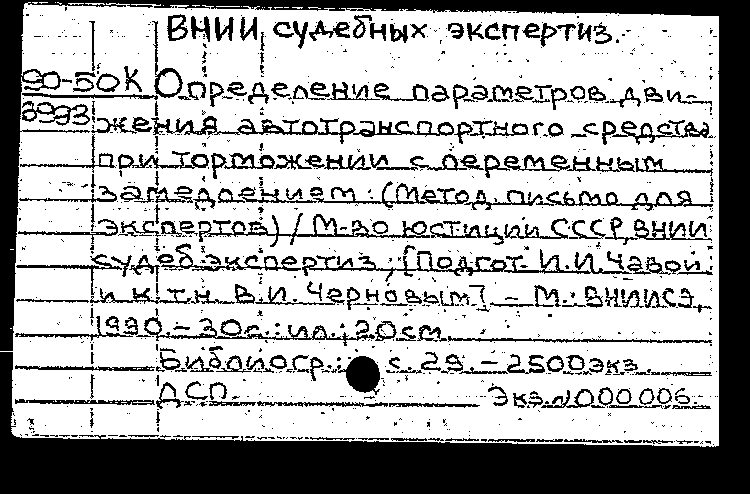 ВНИИ судебных экспертиз.
90-50К Определение параметров дви-
3993 жения автотранспортного средства
при торможении с переменным
замедлением: (Метод. письмо для
экспертов) / М-во юстиции СССР, ВНИИ
судеб. экспертиз; [Подгот. И.И. Чавой
и к.т.н. В.И. Черновым]. – М.: ВНИИСЭ,
1990. – 30с.: ил.; 20см.
Библиогр.: с. 29. – 2500экз.
ДСП. Экз.N000006.